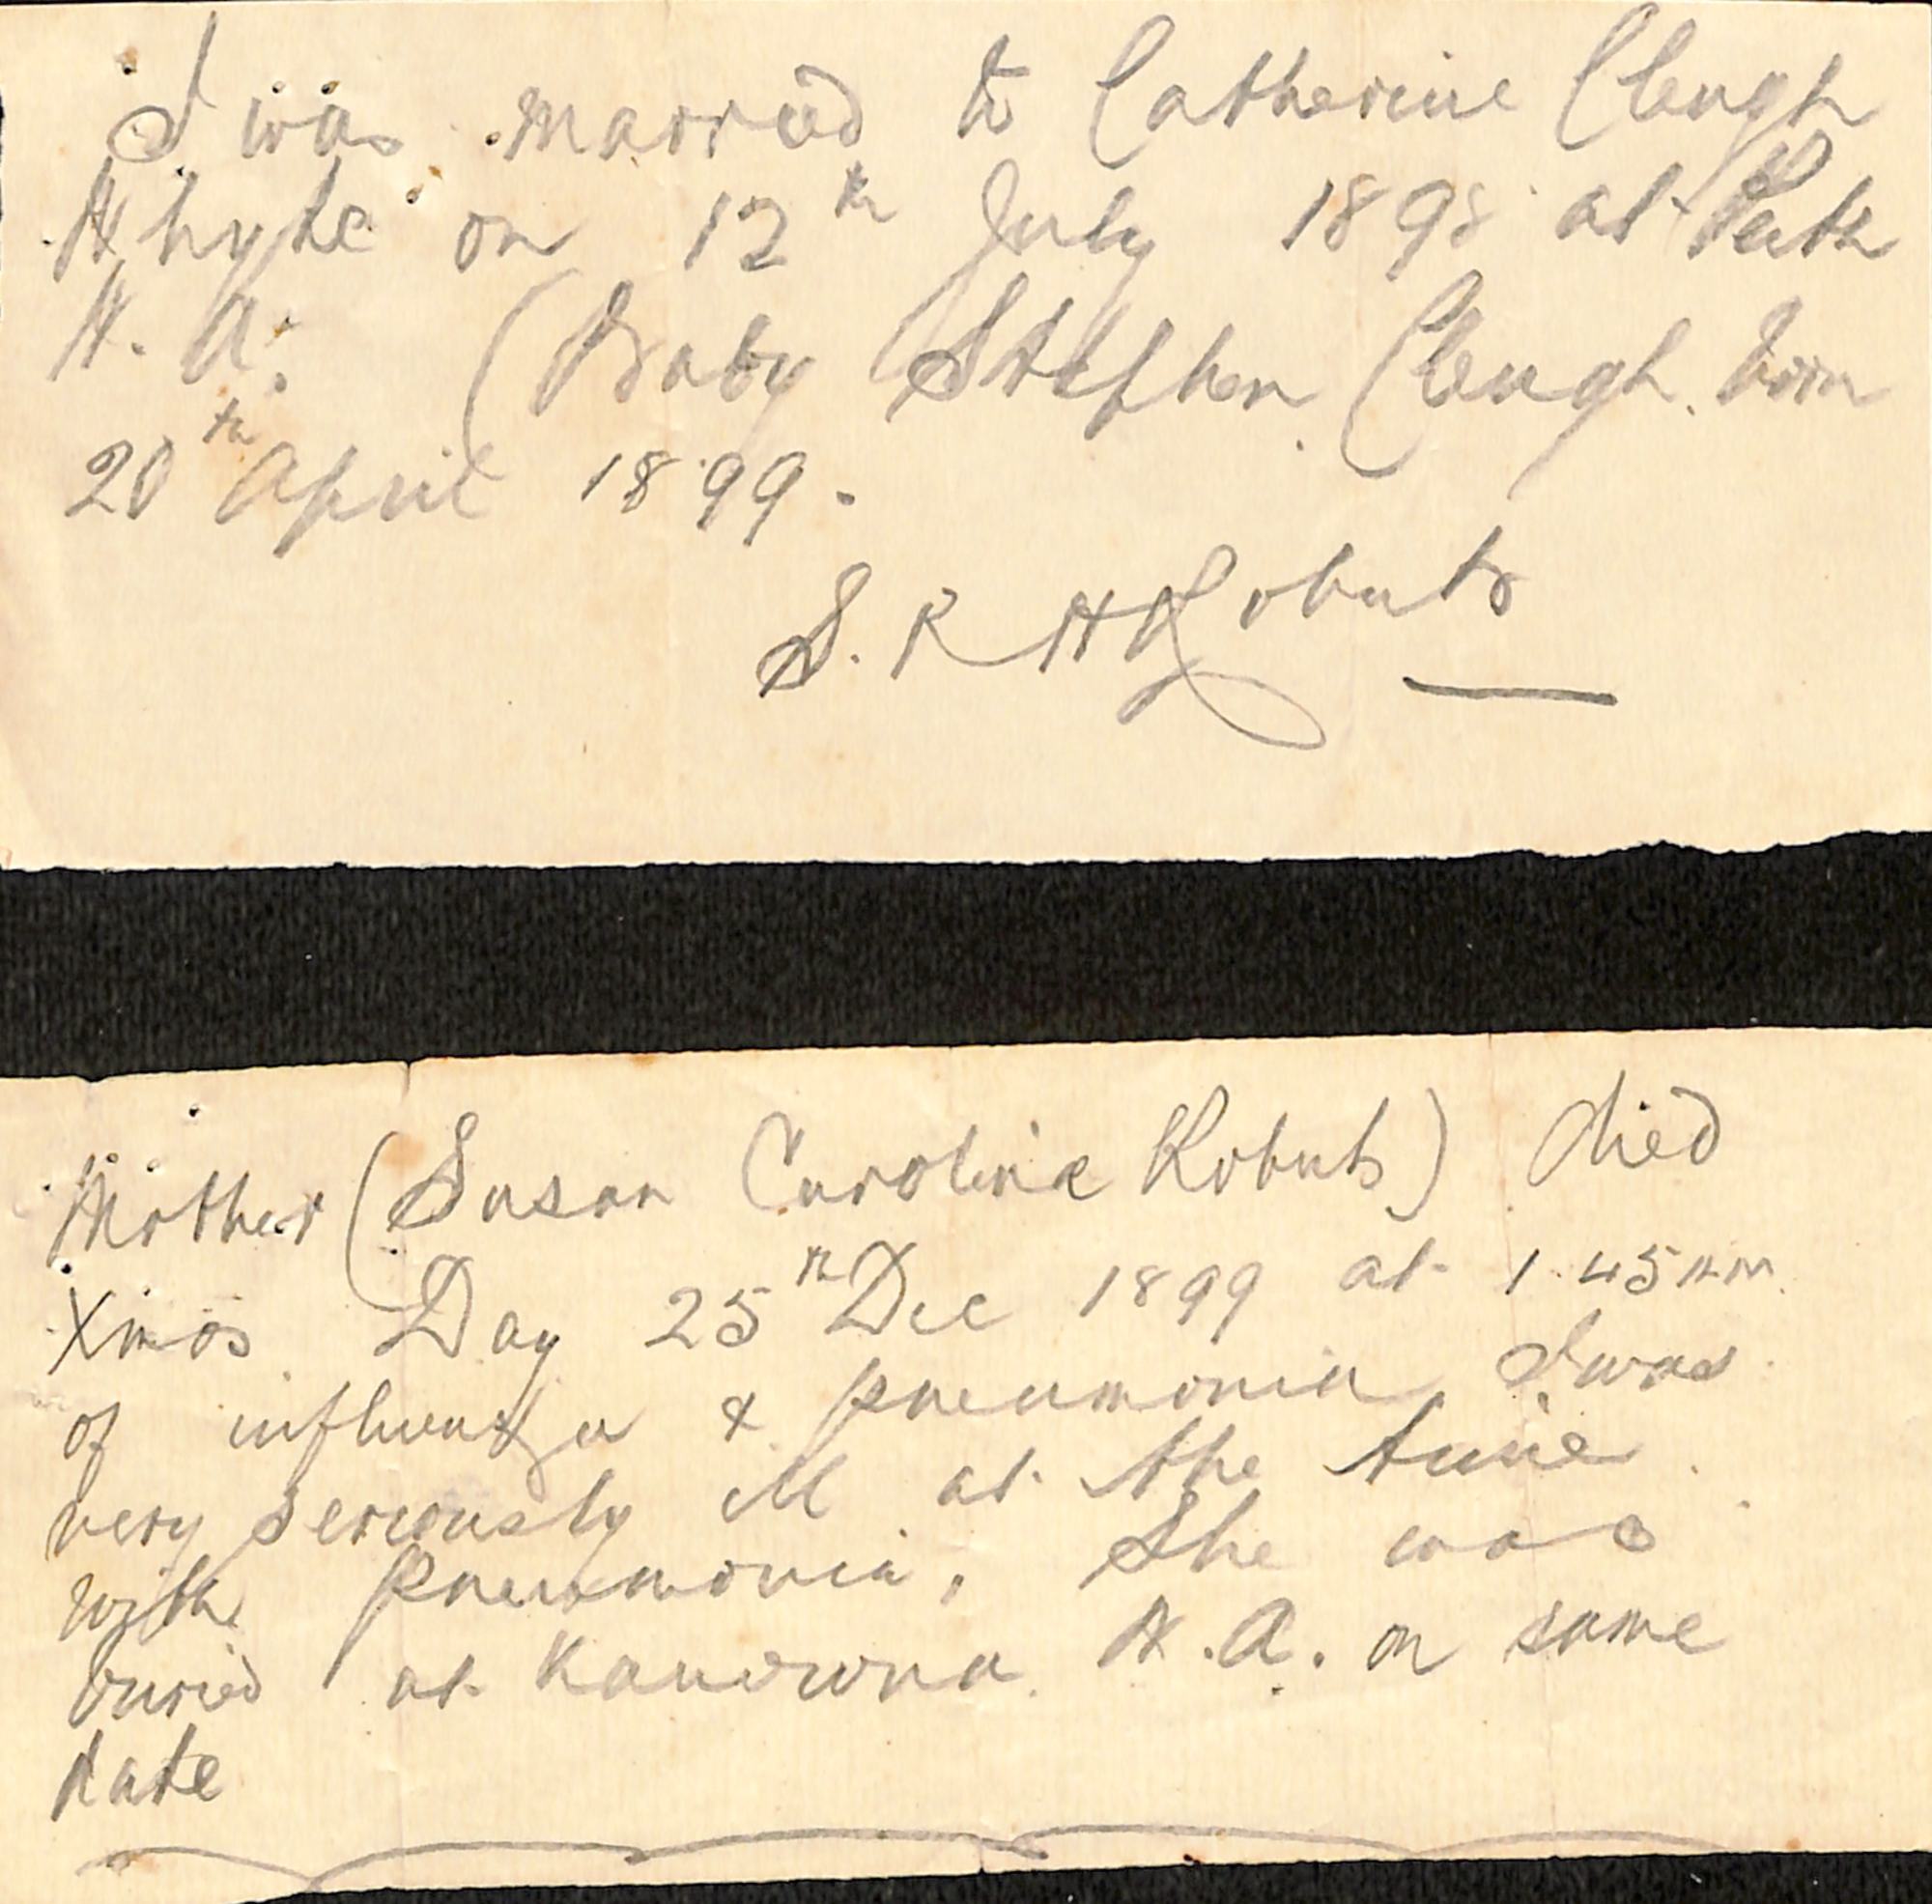 I was married to Catherine Cleugh
Whyte on 12th July 1898 at Perth
W. A. (Baby Stephen Cleugh born
20th April 1899.
S. R H Roberts
Mother (Susan Caroline Roberts) died
Xmas Day 25th Dec 1899 at 1.45 AM
of influenza & pneumonia I was
very seriously ill at the time
with pneumonia. She was
buried at Kanowna W.A. on same
date